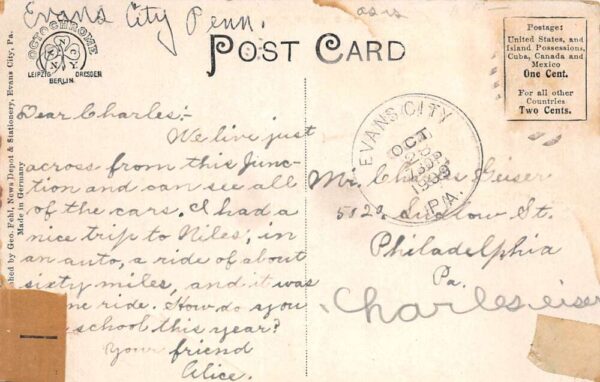 Evans City Penn.
as is
OCTOCHROME
NCNY
LEIPZIG DRESDEN
BERLIN
POST CARD
Postage:
United States, and
Island Possessions,
Cuba, Canada and
Mexico
One Cent.
For all other
Countries
Two Cents.
hed by Geo. Fehl, News Depot & Stationery, Evans City, Pa.
Made in Germany
Dear Charles:-
We live just
across from this Junc-
tion and can see all
of the cars. I had a
nice trip to Niles, in
an auto, a ride of about
sixty miles, and it was
ne ride. How do you
school this year?
Your friend
Alice.
EVANS CITY
OCT
1909
PA.
Mr. Charles Geiser
Ludlow St.
Philadelphia
Pa.
Charles Geiser